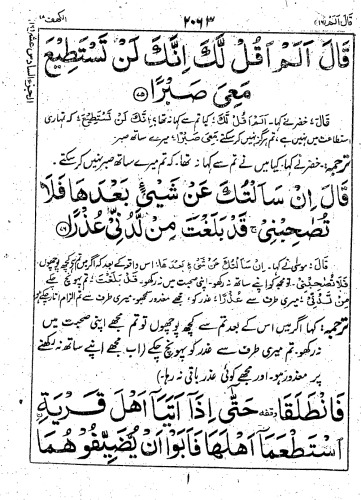 قَالَ اَلَمْ (١٦) ٢٠٦٣ الكهف ١٨
قَالَ اَلَمْ اَقُلْ لَّكَ اِنَّكَ لَنْ تَسْتَطِيْعَ
مَعِيَ صَبْرًا ﴿٧٥﴾
قَالَ: خضر نے کہا۔ اَلَمْ اَقُلْ لَّكَ: کیا تم سے کہا نہ تھا؟ اِنَّكَ لَنْ تَسْتَطِيْعَ: کہ تمہاری
استطاعت میں نہیں ہے، تم ہرگز نہیں کر سکتے۔ مَعِيَ صَبْرًا: میرے ساتھ صبر
ترجمہ: خضر نے کہا۔ کیا میں نے تم سے کہا نہ تھا۔ کہ تم میرے ساتھ صبر نہیں کر سکتے۔
قَالَ اِنْ سَاَلْتُكَ عَنْ شَيْءٍۭ بَعْدَهَا فَلَا
تُصٰحِبْنِيْ ۚ قَدْ بَلَغْتَ مِنْ لَّدُنِّيْ عُذْرًا ﴿٧٦﴾
قَالَ: موسٰی نے کہا۔ اِنْ سَاَلْتُكَ عَنْ شَيْءٍۭ بَعْدَهَا: اس واقعہ کے بعد کہ اگر میں تم سے کچھ پوچھوں
فَلَا تُصٰحِبْنِيْ: تو مجھ کو اپنے ساتھ نہ رکھو۔ اپنی صحبت میں نہ رکھو۔ قَدْ بَلَغْتَ: تم پہونچ چکے
مِنْ لَّدُنِّيْ: میری طرف سے عُذْرًا: عذر کو۔ مجھے معذور سمجھو۔ میری طرف سے تم الزام اتار چکے
ترجمہ: کہا اگر میں اس کے بعد تم سے کچھ پوچھوں تو تم مجھے اپنی صحبت میں
نہ رکھو۔ تم میری طرف سے عذر کو پہونچ چکے (اب مجھے اپنے ساتھ نہ رکھنے
پر معذور ہو۔ اور مجھے کوئی عذر باقی نہ رہا۔)
فَانْطَلَقَا وقفه حَتّٰى اِذَا اَتَيَا اَهْلَ قَرْيَةِ
اسْتَطْعَمَا اَهْلَهَا فَاَبَوْا اَنْ يُّضَيِّفُوْهُمَا
١